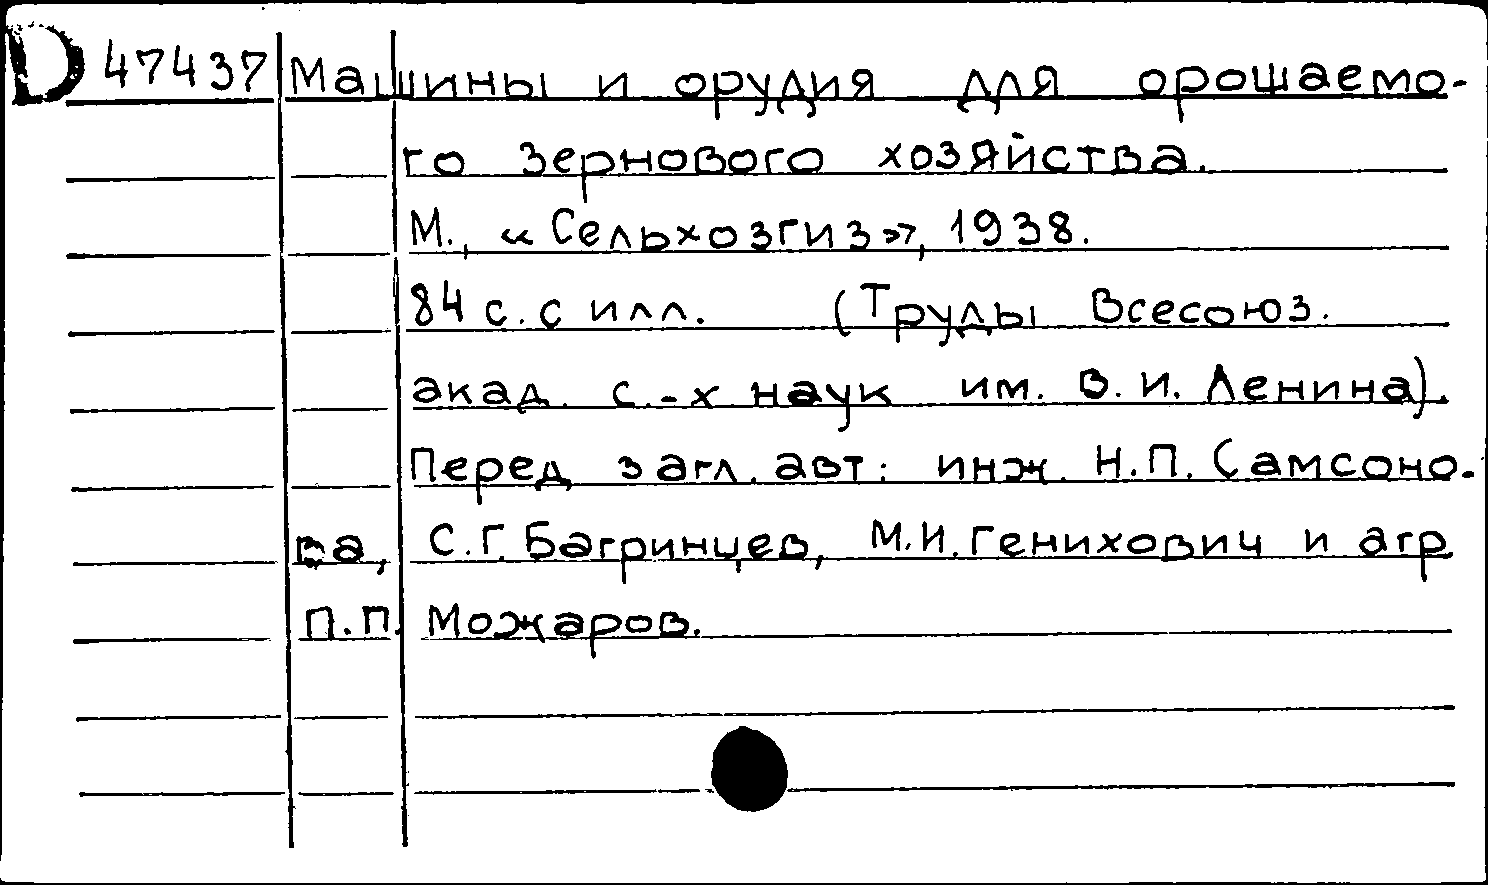 D 47437 Машины и орудия для орошаемо-
го зернового хозяйства.
М., «Сельхозгиз», 1938.
84 с. с илл. (Труды Всесоюз.
акад. с.-х наук им. В. И. Ленина).
Перед загл. авт: инж. Н.П. Самсоно-
ва, С.Г. Багринцев, М.И. Генихович и агр.
П.П. Можаров.